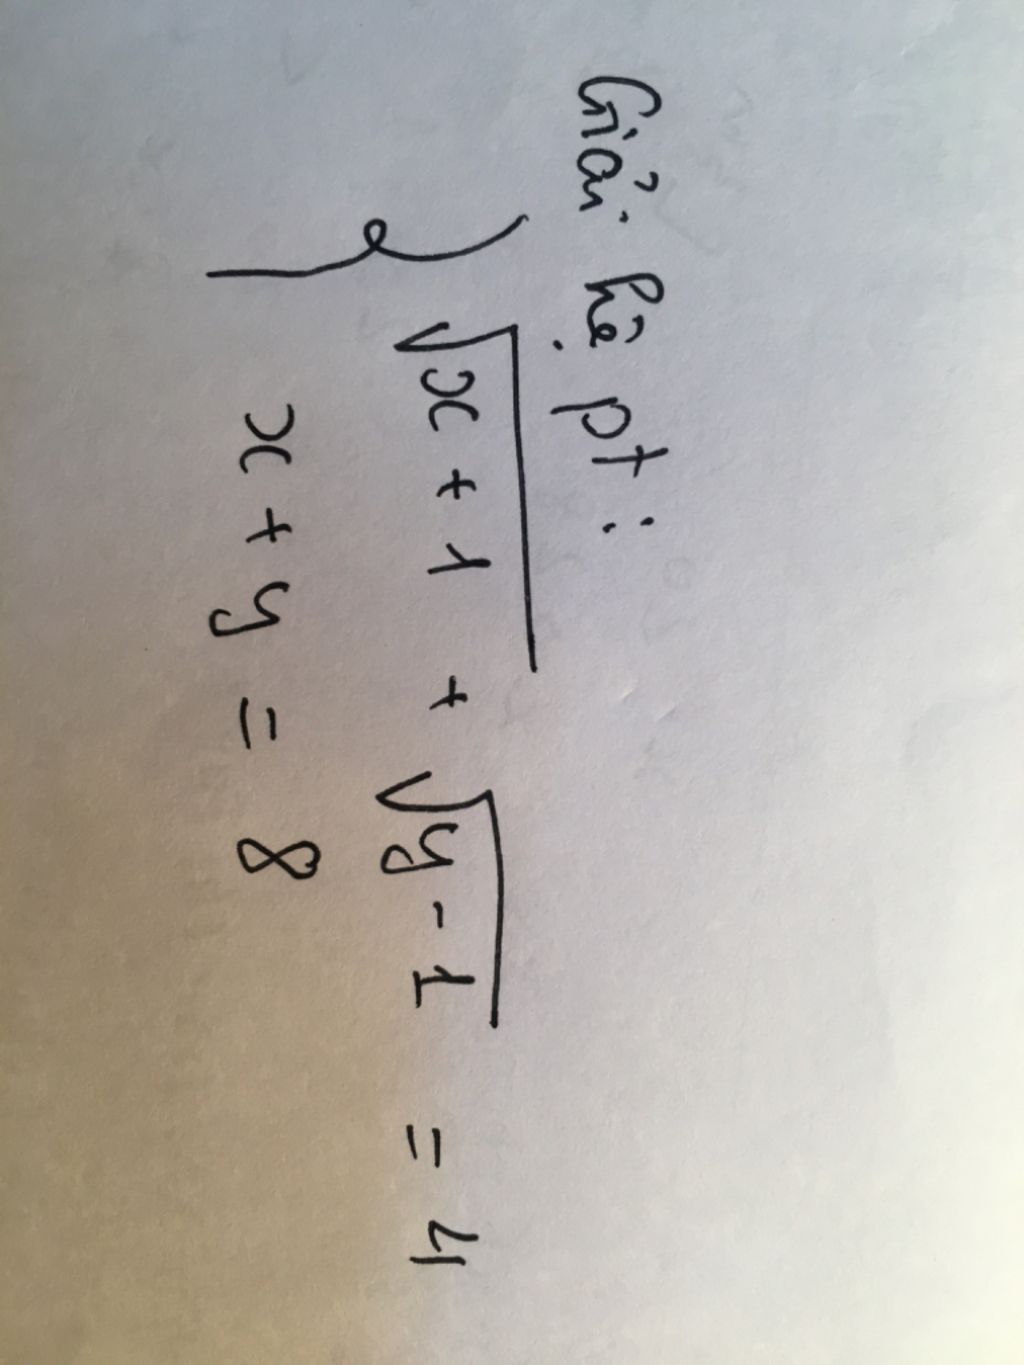 Giải hệ pt :
√(x + 1) + √(y - 1) = 4
x + y = 8